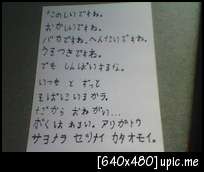 たのしいですね。
おかしいですね。
バカですね。へんたいですね。
うそつきですね。
でも しんぱいするな。
いつも と ずっと
そばに いるから。
だから おねがい...
ぼくは あるい。アリガトウ
サヨナラ セツナイ カタオモイ。
[640x480]upic.me